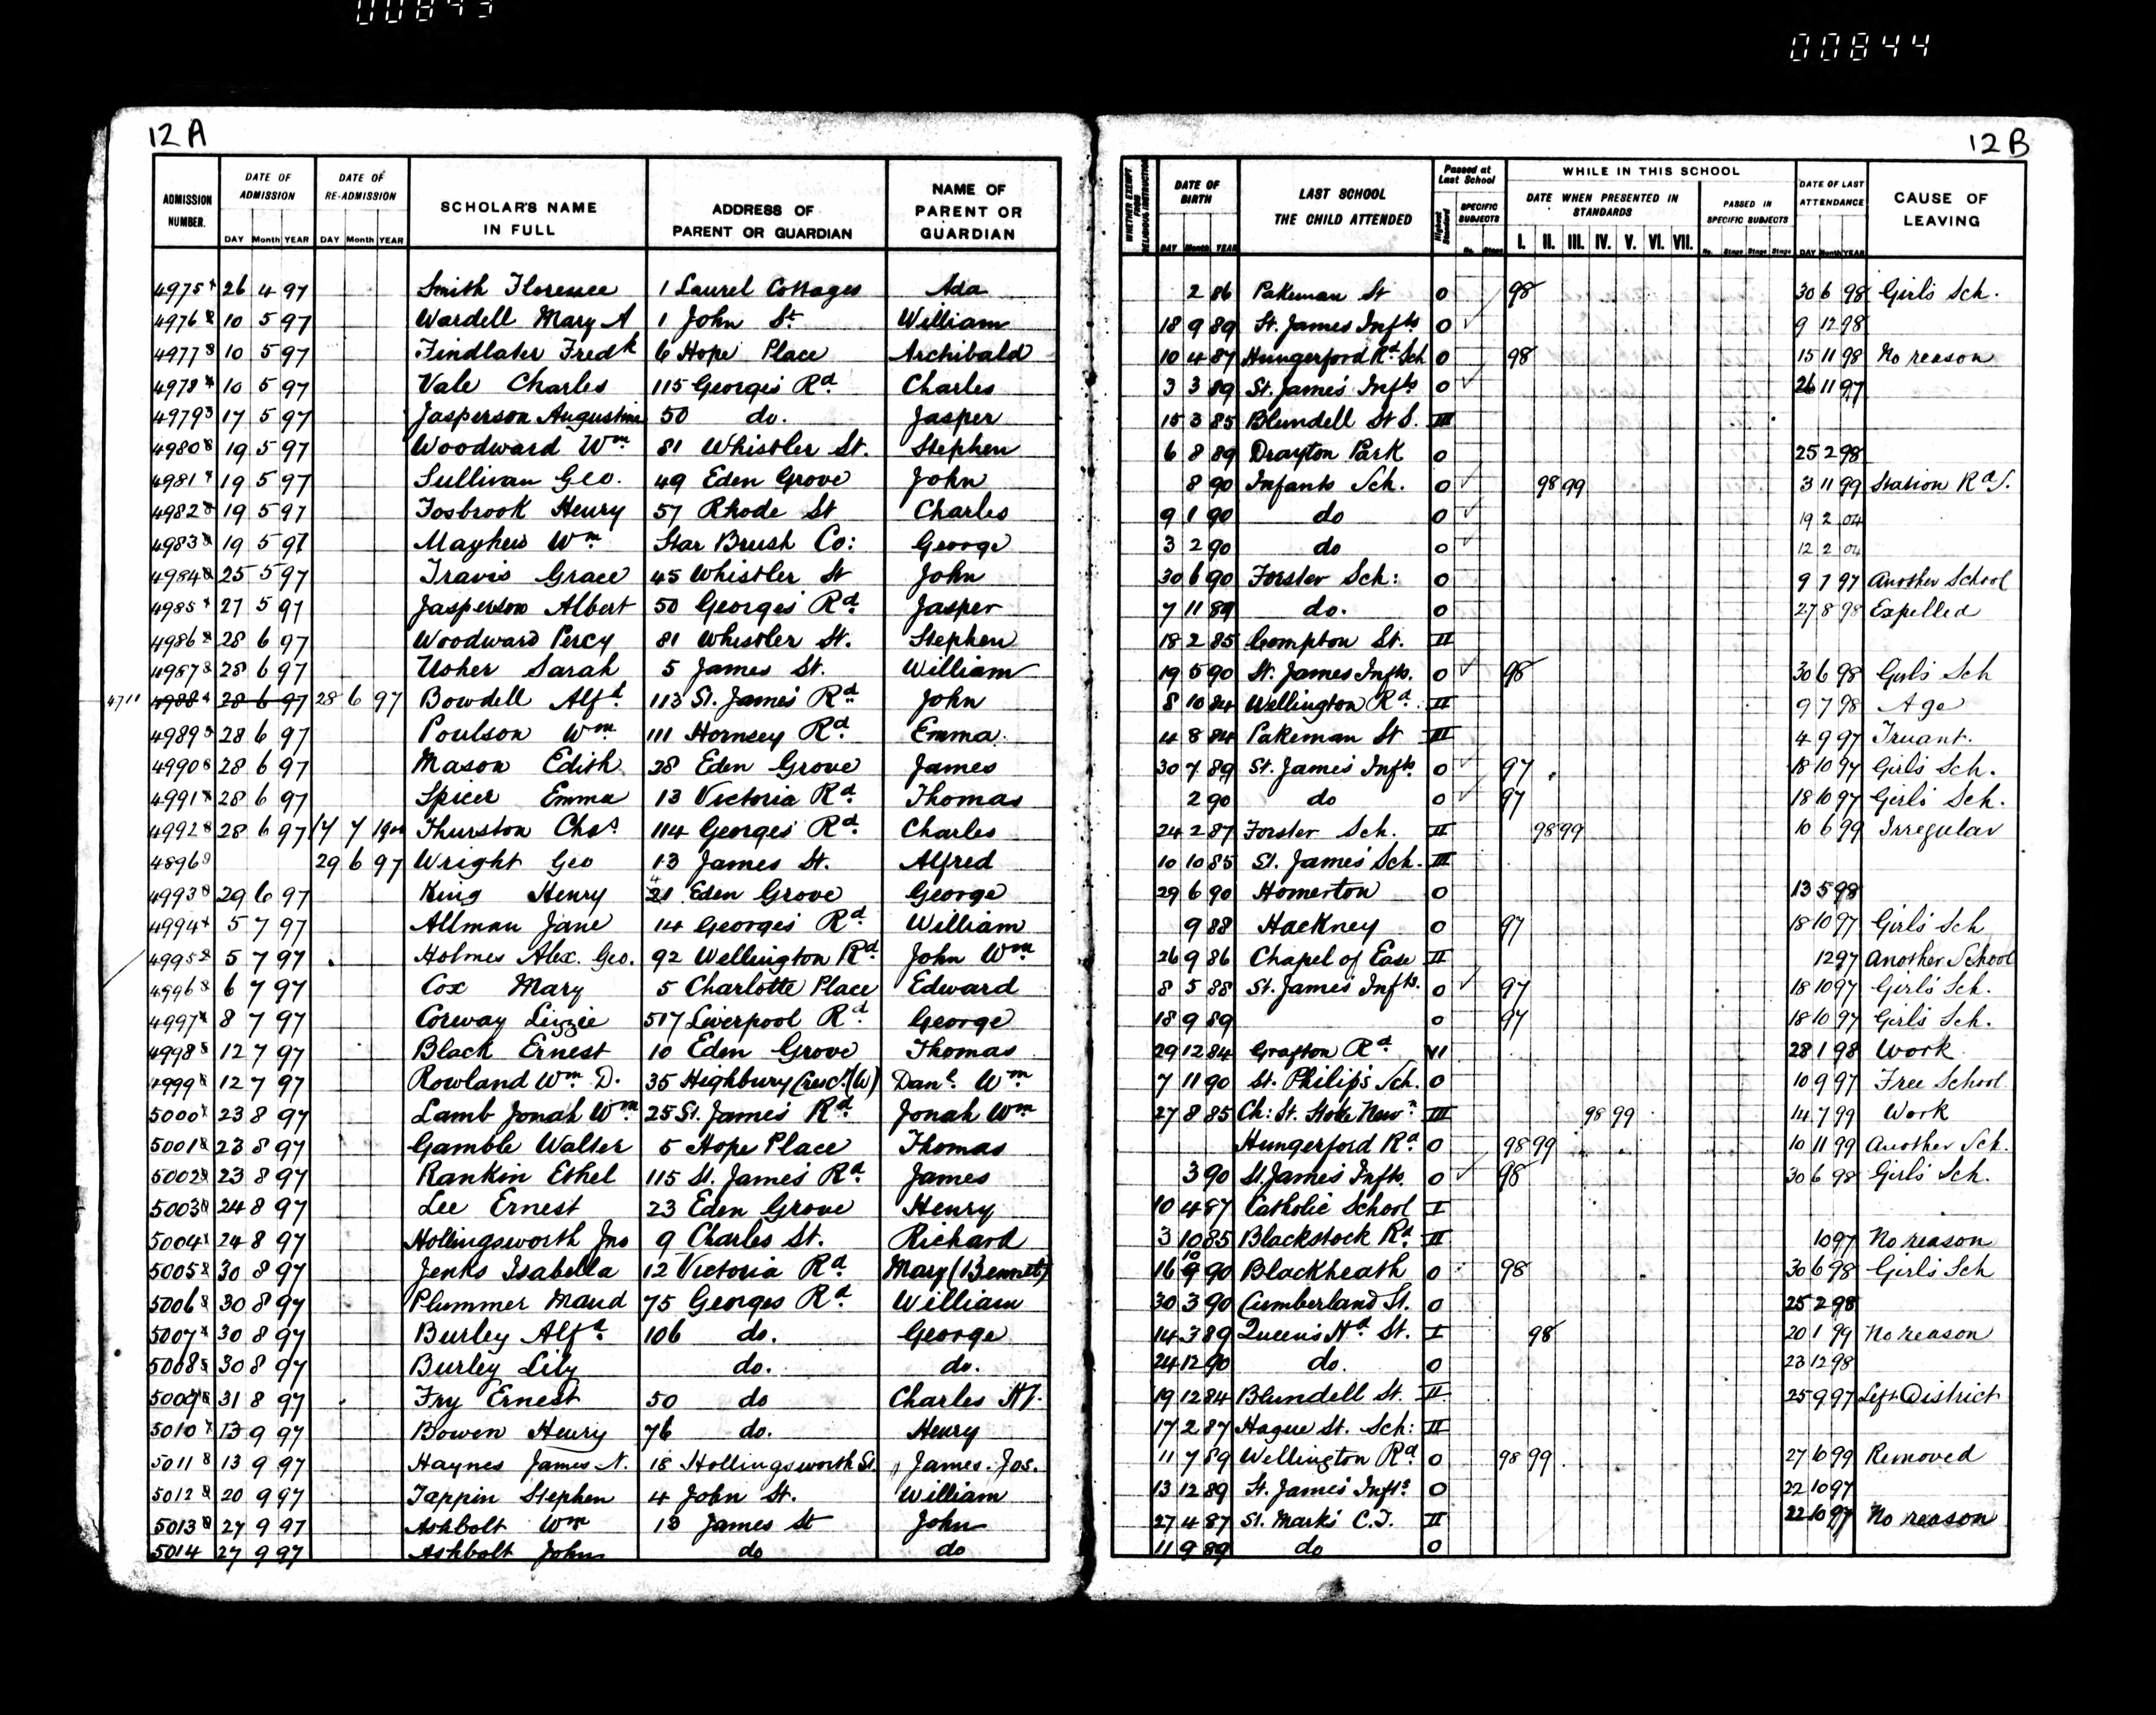 00843
00844
12 A
12 B
ADMISSION NUMBER. DATE OF ADMISSION DATE OF RE-ADMISSION SCHOLAR'S NAME IN FULL ADDRESS OF PARENT OR GUARDIAN NAME OF PARENT OR GUARDIAN
DAY Month YEAR DAY Month YEAR
WHETHER EXEMPT FROM RELIGIOUS INSTRUCTION DATE OF BIRTH LAST SCHOOL THE CHILD ATTENDED Passed at Last School WHILE IN THIS SCHOOL DATE OF LAST ATTENDANCE CAUSE OF LEAVING
Highest Standard SPECIFIC SUBJECTS DATE WHEN PRESENTED IN STANDARDS PASSED IN SPECIFIC SUBJECTS
DAY Month YEAR No. Stage I. II. III. IV. V. VI. VII. No. Stage Stage Stage DAY Month YEAR
4975 26 4 97 Smith Florence 1 Laurel Cottages Ada 2 86 Pakeman St 0 98 30 6 98 Girls Sch.
4976 10 5 97 Wardell Mary A 1 John St. William 18 9 89 St. James Infts 0 ✓ 9 12 98
4977 10 5 97 Findlater Fredk 6 Hope Place Archibald 10 4 87 Hungerford Rd Sch 0 98 15 11 98 No reason
4978 10 5 97 Vale Charles 115 Georges Rd. Charles 3 3 89 St. James Infts 0 ✓ 26 11 97
4979 17 5 97 Jasperson Augustine 50 do. Jasper 15 3 85 Blundell St S. III
4980 19 5 97 Woodward Wm 81 Whistler St. Stephen 6 8 89 Drayton Park 0 25 2 98
4981 19 5 97 Sullivan Geo. 49 Eden Grove John 8 90 Infants Sch. 0 ✓ 98 99 3 11 99 Station Rd S.
4982 19 5 97 Fosbrook Henry 57 Rhode St Charles 9 1 90 do 0 ✓ 19 2 04
4983 19 5 97 Mayhew Wm Star Brush Co: George 3 2 90 do 0 ✓ 12 2 04
4984 25 5 97 Travis Grace 45 Whistler St John 30 6 90 Forster Sch: 0 9 7 97 Another School
4985 27 5 97 Jasperson Albert 50 Georges Rd. Jasper 7 11 89 do. 0 27 8 98 Expelled
4986 28 6 97 Woodward Percy 81 Whistler St. Stephen 18 2 85 Compton St. II
4987 28 6 97 Usher Sarah 5 James St. William 19 5 90 St. James Infts. 0 ✓ 98 30 6 98 Girls Sch
4711 4988 28 6 97 28 6 97 Bowdell Alfd 113 St. James Rd John 8 10 84 Wellington Rd. II 9 7 98 Age
4989 28 6 97 Poulson Wm 111 Hornsey Rd. Emma 4 8 84 Pakeman St III 4 9 97 Truant.
4990 28 6 97 Mason Edith 28 Eden Grove James 30 7 89 St. James Infts. 0 ✓ 97 18 10 97 Girls Sch.
4991 28 6 97 Spicer Emma 13 Victoria Rd. Thomas 2 90 do 0 ✓ 97 18 10 97 Girls Sch.
4992 28 6 97 17 7 1900 Thurston Chas 114 Georges Rd. Charles 24 2 87 Forster Sch. II 98 99 10 6 99 Irregular
4896 29 6 97 Wright Geo 13 James St. Alfred 10 10 85 St. James Sch. III
4993 29 6 97 King Henry 21 Eden Grove George 29 6 90 Homerton 0 13 5 98
4994 5 7 97 Allman Jane 14 Georges Rd William 9 88 Hackney 0 97 18 10 97 Girls Sch
4995 5 7 97 Holmes Alex. Geo. 92 Wellington Rd John Wm 26 9 86 Chapel of Ease II 12 97 Another School
4996 6 7 97 Cox Mary 5 Charlotte Place Edward 8 5 88 St. James Infts. 0 ✓ 97 18 10 97 Girls Sch.
4997 8 7 97 Corway Lizzie 517 Liverpool Rd George 18 9 89 0 97 18 10 97 Girls Sch.
4998 12 7 97 Black Ernest 10 Eden Grove Thomas 29 12 84 Grafton Rd VI 28 1 98 Work
4999 12 7 97 Rowland Wm D. 35 Highbury Cresct. (W) Danl. Wm 7 11 90 St. Philip's Sch. 0 10 9 97 Free School
5000 23 8 97 Lamb Jonah Wm 25 St. James Rd. Jonah Wm 27 8 85 Ch: St. Stoke Newn III 98 99 14 7 99 Work
5001 23 8 97 Gamble Walter 5 Hope Place Thomas Hungerford Rd 0 98 99 10 11 99 Another Sch.
5002 23 8 97 Rankin Ethel 115 St. James Rd. James 3 90 St. James Infts. 0 ✓ 98 30 6 98 Girls Sch.
5003 24 8 97 Lee Ernest 23 Eden Grove Henry 10 4 87 Catholic School I
5004 24 8 97 Hollingsworth Jno 9 Charles St. Richard 3 10 85 Blackstock Rd II 10 97 No reason
5005 30 8 97 Jenks Isabella 12 Victoria Rd. Mary (Bennett) 16 9 10 90 Blackheath 0 98 30 6 98 Girls Sch
5006 30 8 97 Plummer Maud 75 Georges Rd. William 30 3 90 Cumberland St. 0 25 2 98
5007 30 8 97 Burley Alfd. 106 do. George 14 3 89 Queen's Hd St. I 98 20 1 99 No reason
5008 30 8 97 Burley Lily do. do. 24 12 90 do. 0 23 12 98
5009 31 8 97 Fry Ernest 50 do Charles W. 19 12 84 Blundell St. II 25 9 97 Left District
5010 13 9 97 Bowen Henry 76 do. Henry 17 2 87 Hague St. Sch: II
5011 13 9 97 Haynes James N. 18 Hollingsworth St. James. Jos. 11 7 89 Wellington Rd 0 98 99 27 10 99 Removed
5012 20 9 97 Tappin Stephen 4 John St. William 13 12 89 St. James Infts 0 22 10 97
5013 27 9 97 Ashbolt Wm 13 James St John 27 4 87 St. Mark's C.T. II 22 10 97 No reason
5014 27 9 97 Ashbolt John do do 11 9 89 do 0